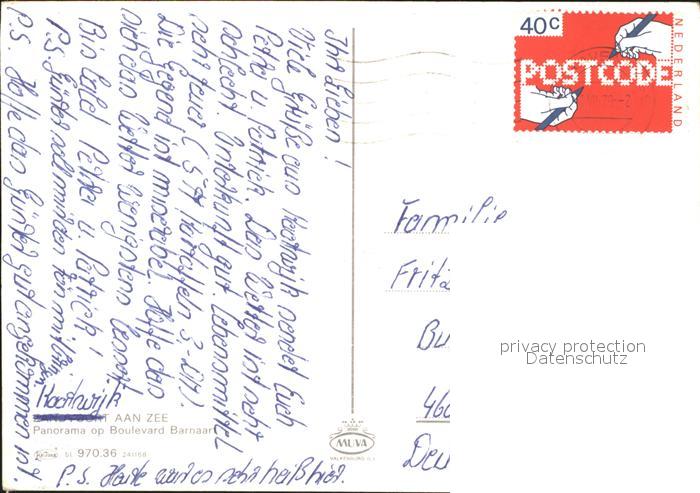 Ihr Lieben!
Viele Grüße aus Katwijk sendet Euch
Petra u. Patrick. Das Wetter ist sehr
schlecht. Unterkunft gut. Lebensmittel
sehr teuer (5 Kartoffeln 3,- DM)
Die Gegend ist miserabel. Hoffe das
sich das Wetter wenigstens bessert
Bis bald Petra u. Patrick!
P.S. Günter
P.S. Hoffe das Günter gut angekommen ist.
P.S. Heute war es sehr heiß hier.
Katwijk
ZANDVOORT AAN ZEE
Panorama op Boulevard Barnaart
bl 970.36 241168
MUVA
VALKENBURG
40c
POSTCODE
NEDERLAND
Familie
Fritz
Bu
460
Deu
privacy protection
Datenschutz